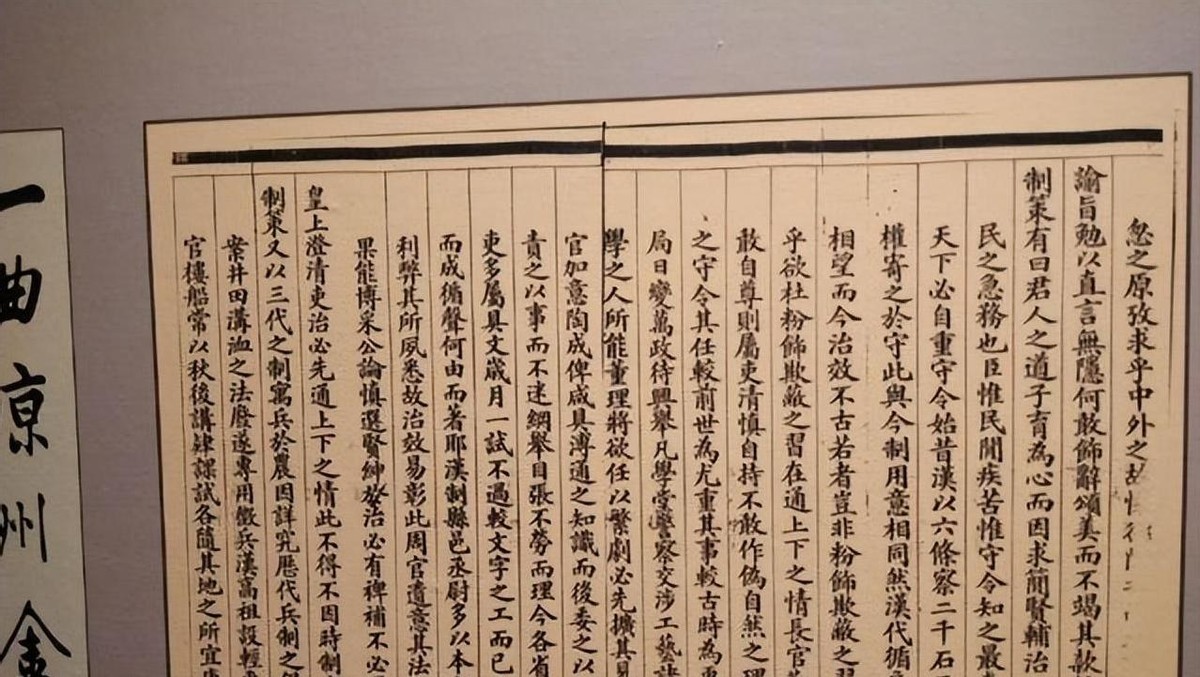 忽之原攷求乎中外之故
諭旨勉以直言無隱何敢飾辭頌美而不竭其款
制策有曰君人之道子育為心而因求簡賢輔治
民之急務也臣惟民間疾苦惟守令知之最
天下必自重守令始昔漢以六條察二千石
權寄之於守此與今制用意相同然漢代循
相望而今治效不古若者豈非粉飾欺蔽之習
乎欲杜粉飾欺蔽之習在通上下之情長官
敢自尊則屬吏清慎自持不敢作偽自然之理
之守令其任較前世為尤重其事較古時為
局日變萬政待興舉凡學堂警察交涉工藝諸
學之人所能董理將欲任以繁劇必先擴其見
官加意陶成俾咸具溥通之知識而後委之以
責之以事而不迷綱舉目張不勞而理今各省
吏多屬具文歲月一試不過較文字之工而已
而成循聲何由而著耶漢制縣邑丞尉多以本
利弊其所夙悉故治效易彰此周官遺意其法
果能博采公論慎選賢紳於治必有裨補不必
皇上澄清吏治必先通上下之情此不得不因時制
制策又以三代之制寓兵於農因詳究歷代兵制之得
案井田溝洫之法廢遂專用徵兵漢高祖設輕車
官樓船常以秋後講肄課試各隨其地之所宜
一曲京州金